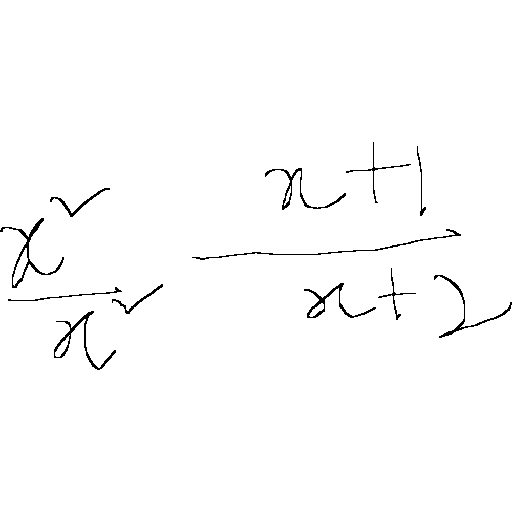 \frac{x^2}{x^2} \frac{x+1}{x+2}